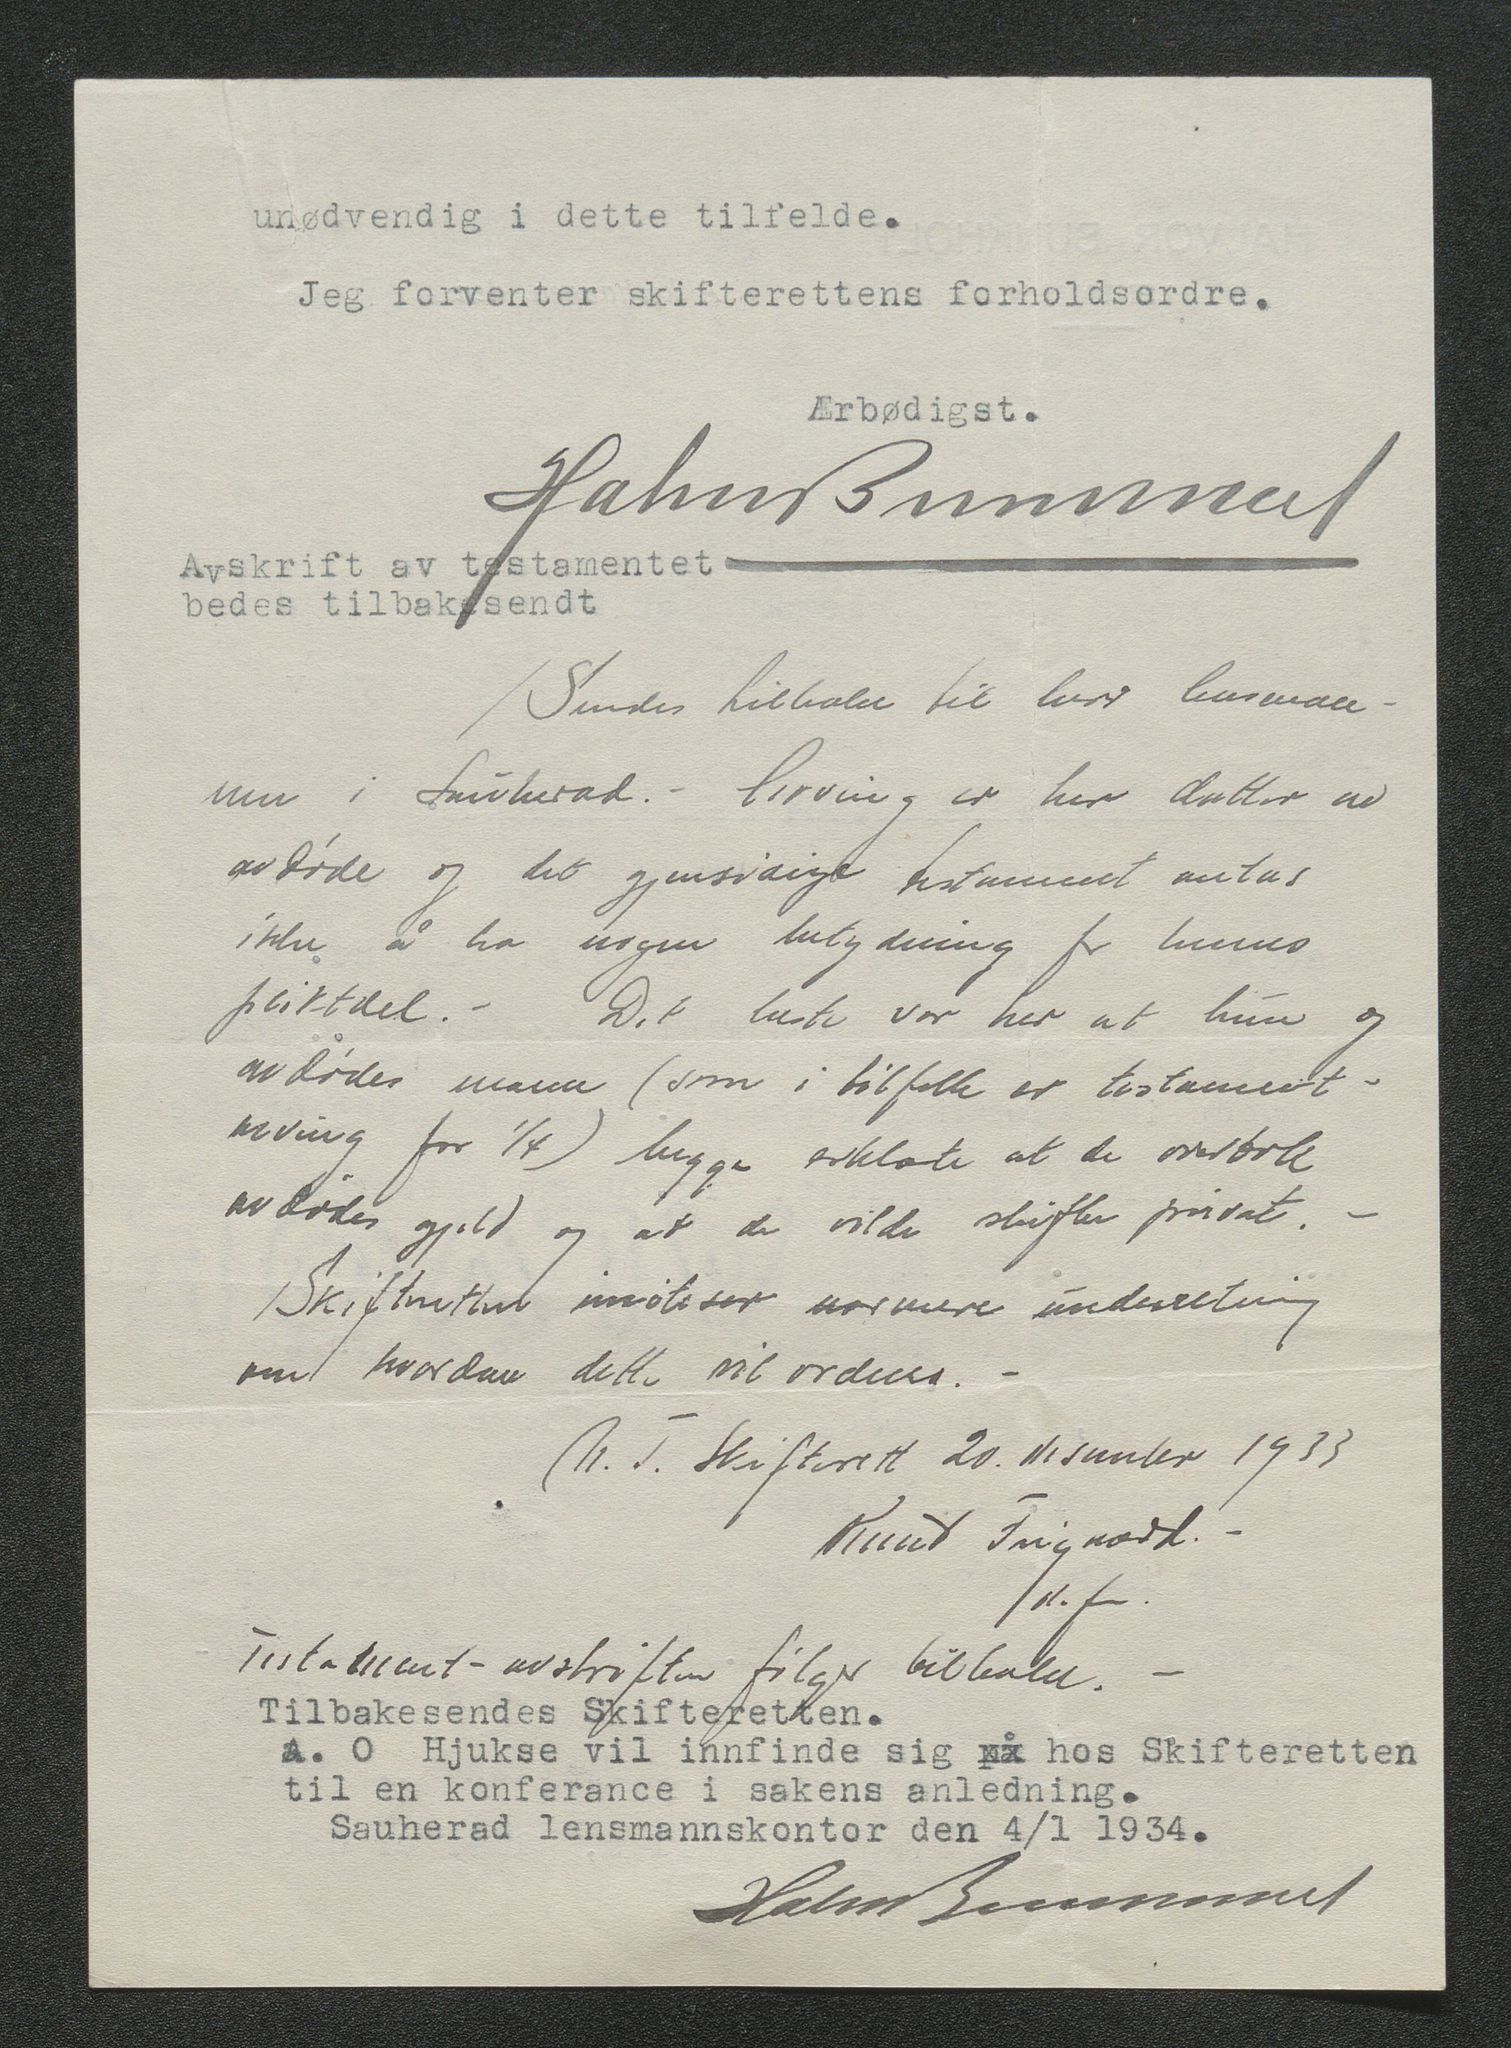 unødvendig i dette tilfelde.
Jeg forventer skifterettens forholdsordre.
Ærbødigst.
Avskrift av testamentet
bedes tilbakesendt
Sendes tilbake til herr lensman-
nen i Sauherad. - Arving er her datter av
avdøde og det gjensidige testament antas
ikke å ha nogen betydning for hennes
pliktdel. - Det beste var her at hun og
avdødes mann (som i tilfelle er testament-
arving for 1/4) begge erklærte at de overtok
avdødes gjeld og at de vilde skifte privat. -
Skifteretten imøteser nærmere underretning
om hvordan dette vil ordnes. -
N. T. Skifterett 20. desember 1933
Knut
d. fm.
Testament-avskriften følger tilbake. -
Tilbakesendes Skifteretten.
A. O Hjukse vil innfinde sig på hos Skifteretten
til en konferance i sakens anledning.
Sauherad lensmannskontor den 4/1 1934.